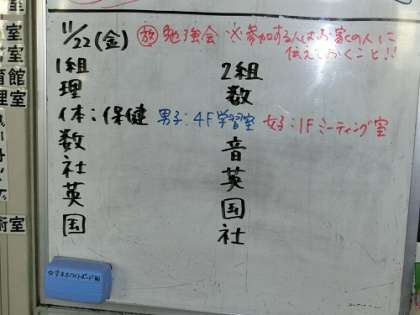 11/22(金) 放 勉強会 ※参加する人はお家の人に
伝えておくこと!!
1組 2組
理 数
体:保健 男子:4F学習室 女子:1Fミーティング室
数 音
社 英
英 国
国 社
室
室
館
室
室
術室